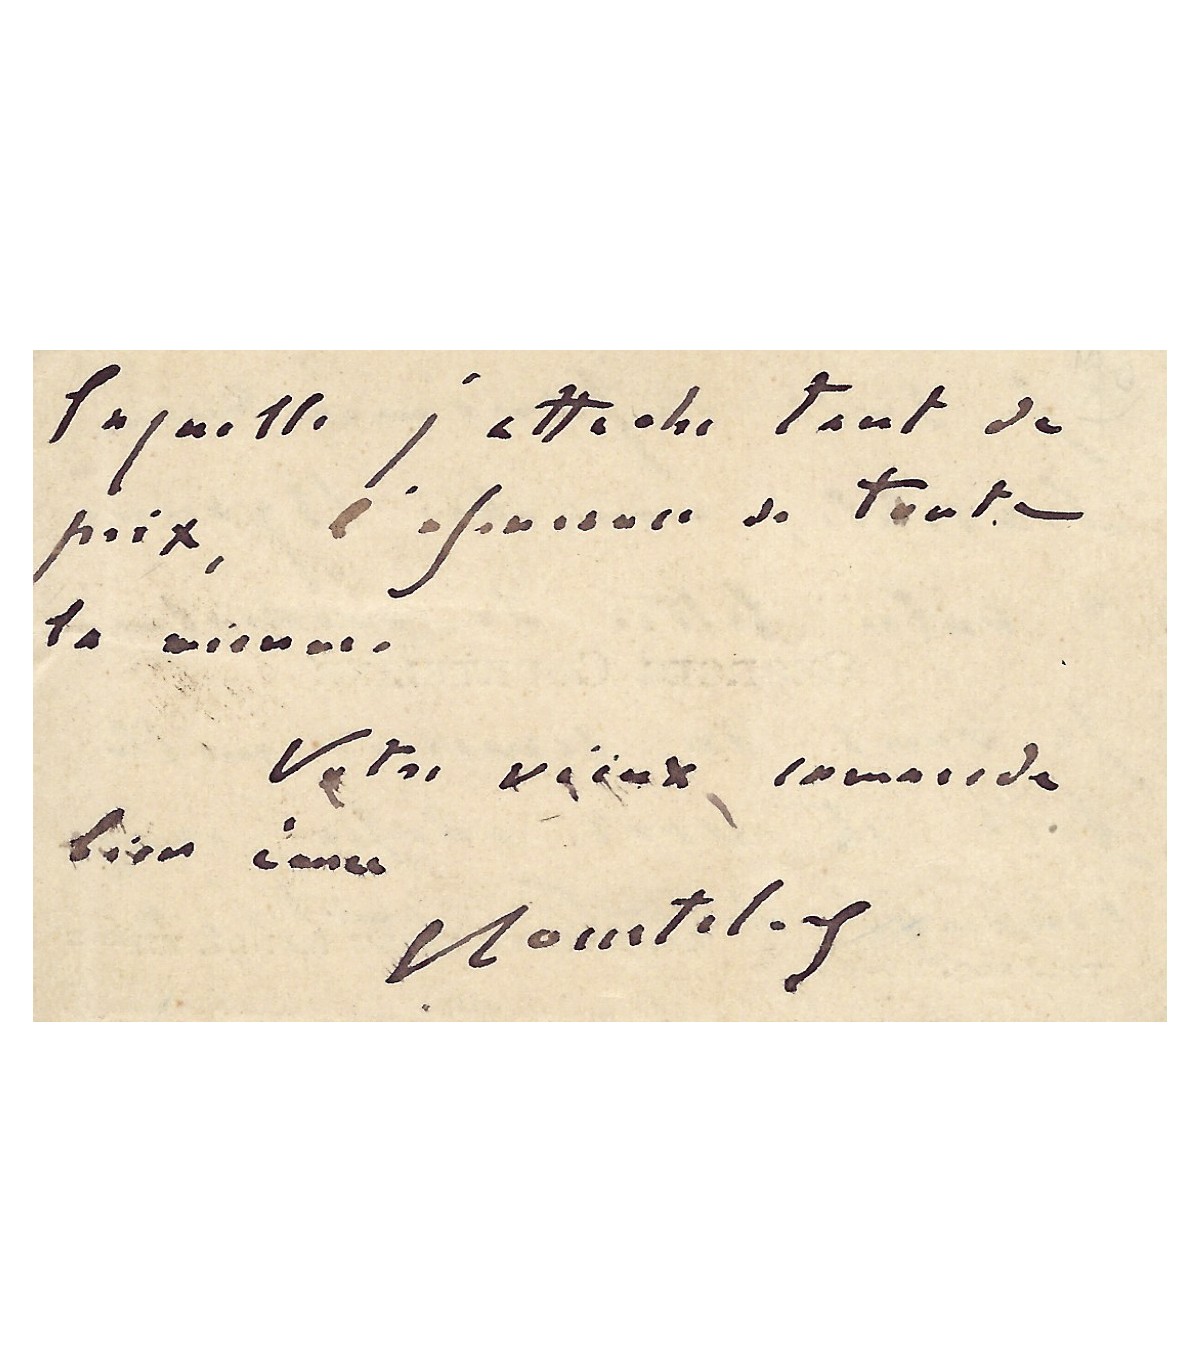 laquelle j'attache tant de
prix, l'assurance de toute
la mienne.
Votre vieux camarade
bien ému